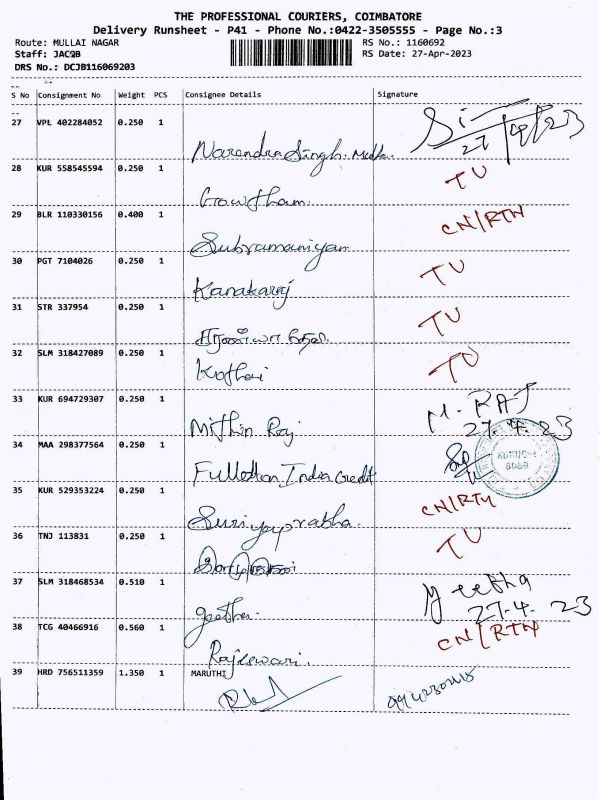 THE PROFESSIONAL COURIERS, COIMBATORE
Delivery Runsheet - P41 - Phone No.:0422-3505555 - Page No.:3
Route: MULLAI NAGAR RS No.: 1160692
Staff: JACOB RS Date: 27-Apr-2023
DRS No.: DCJB116069203
S No Consignment No Weight PCS Consignee Details Signature
27 VPL 402284052 0.250 1
Narendra Singh 27/4/23
28 KUR 558545594 0.250 1 TU
Gowtham
29 BLR 110330156 0.400 1 CN/RTN
Subramaniyan
30 PGT 7104026 0.250 1 TU
Kanakaraj
31 STR 337954 0.250 1 TU
32 SLM 318427089 0.250 1 TU
Kothai
33 KUR 694729307 0.250 1 M. RAJ
Mithin Raj 27.4.23
34 MAA 298377564 0.250 1
Fullerton India Credit
35 KUR 529353224 0.250 1 CN/RTN
Suriyaprabha
36 TNJ 113831 0.250 1 TU
37 SLM 318468534 0.510 1 Geetha
geetha. 27.4.23
38 TCG 40466916 0.560 1 CN/RTN
Rajeswari.
39 HRD 756511359 1.350 1 MARUTHI